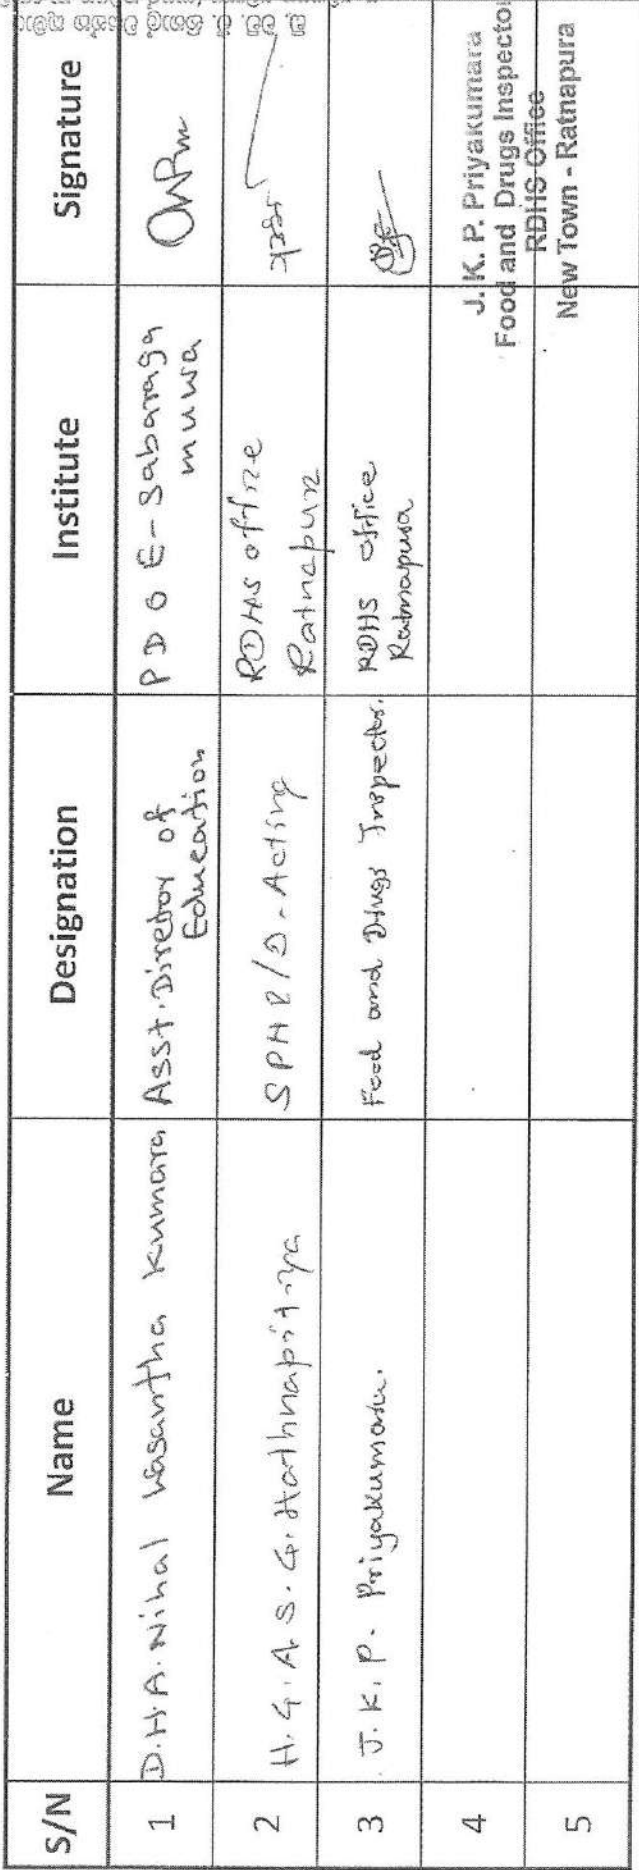 S/N Name Designation Institute Signature
1 D.H.A. Nihal Wasantha Kumara Asst. Diretor of Education PDOE-Sabaraga muwa
2 H.G.A.S.G. Hathnapitiya SPHI/D-Acting RDHS office Ratnapura
3 J.K.P. Priyakumara. Food and Drugs Inspector. RDHS office Ratnapura
4
5
J. K. P. Priyakumara
Food and Drugs Inspector
RDHS Office
New Town - Ratnapura